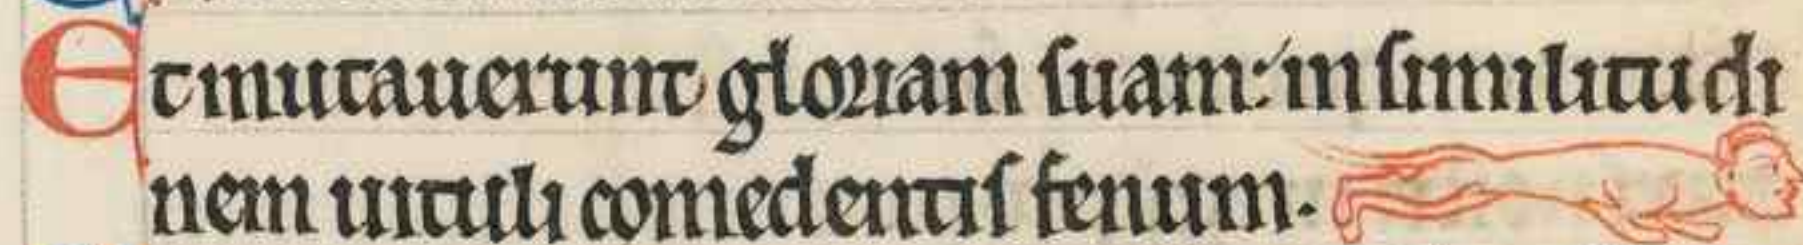 Et mutauerunt gloriam suam: in similitudi
nem uituli comedentis fenum.